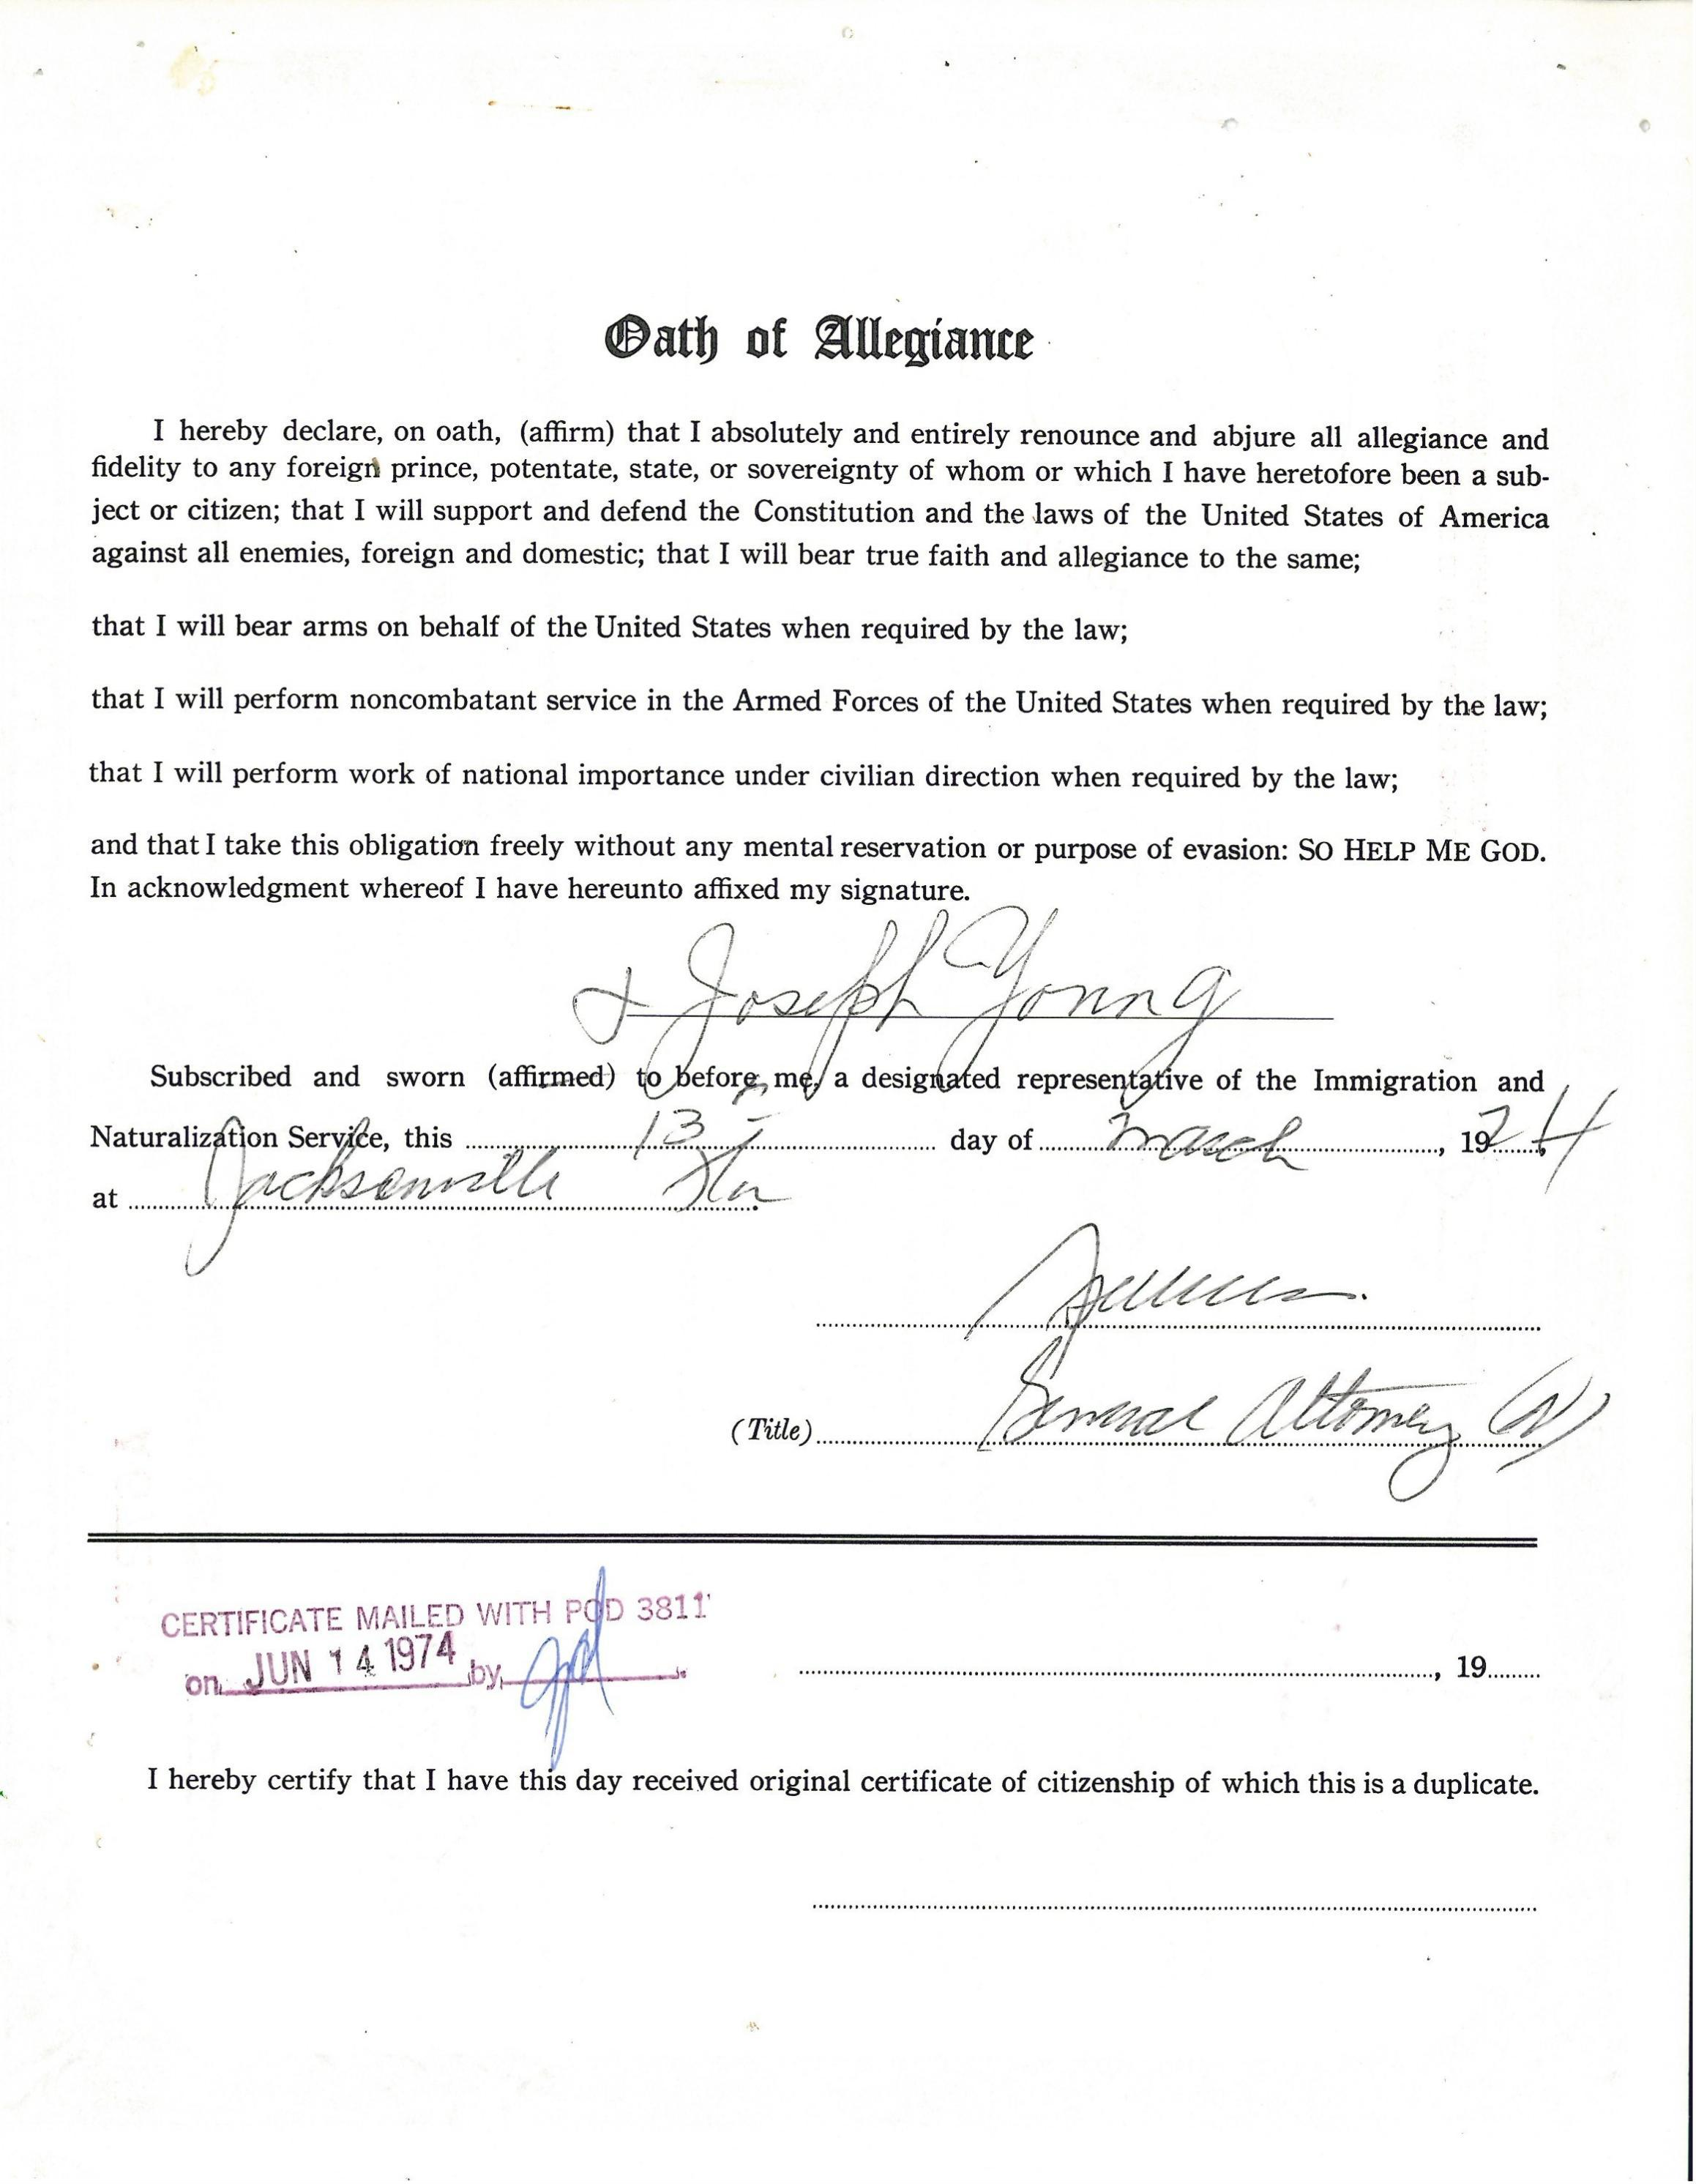 Oath of Allegiance
I hereby declare, on oath, (affirm) that I absolutely and entirely renounce and abjure all allegiance and
fidelity to any foreign prince, potentate, state, or sovereignty of whom or which I have heretofore been a sub-
ject or citizen; that I will support and defend the Constitution and the laws of the United States of America
against all enemies, foreign and domestic; that I will bear true faith and allegiance to the same;
that I will bear arms on behalf of the United States when required by the law;
that I will perform noncombatant service in the Armed Forces of the United States when required by the law;
that I will perform work of national importance under civilian direction when required by the law;
and that I take this obligation freely without any mental reservation or purpose of evasion: SO HELP ME GOD.
In acknowledgment whereof I have hereunto affixed my signature.
Joseph Young
Subscribed and sworn (affirmed) to before me, a designated representative of the Immigration and
Naturalization Service, this 13 day of March, 1974
at Jacksonville Fla.
(Title) General Attorney (N)
CERTIFICATE MAILED WITH POD 3811
on JUN 14 1974 by
, 19
I hereby certify that I have this day received original certificate of citizenship of which this is a duplicate.